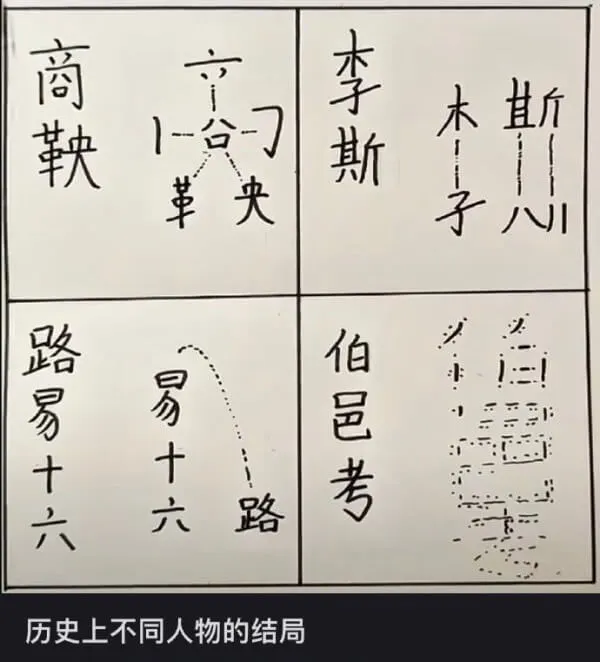 商鞅
六
谷
革 央
李斯
木
子
八 川
路易十六
易十六
路
伯邑考
历史上不同人物的结局